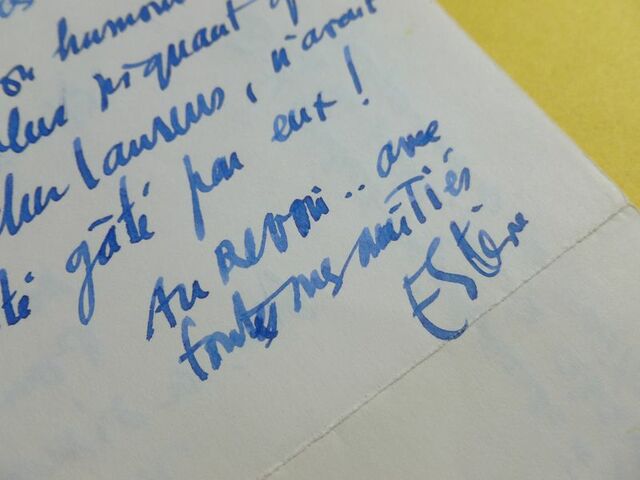 on humour
plus piquant q
cher Laurens, n'avait
té gâté par eux !
Au Revoir.. avec
toutes mes amitiés
Estève